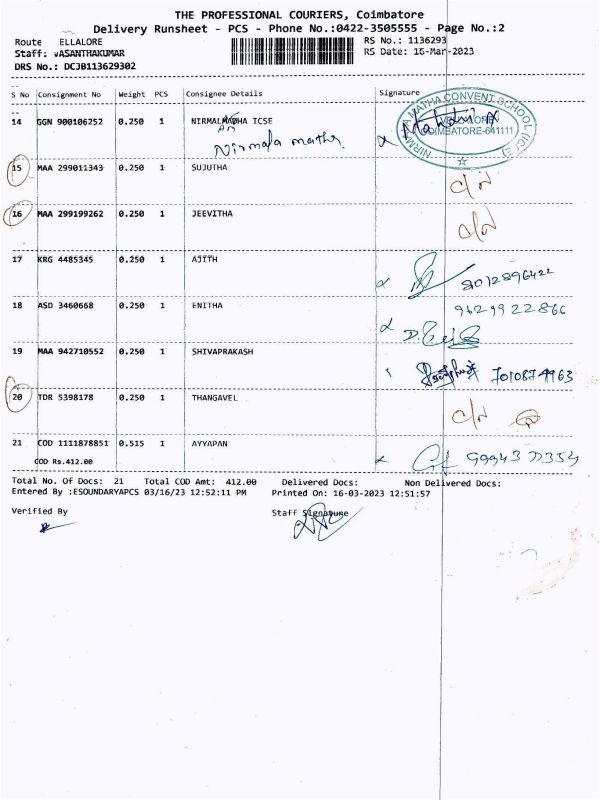 THE PROFESSIONAL COURIERS, Coimbatore
Delivery Runsheet - PCS - Phone No.:0422-3505555 - Page No.:2
Route ELLALORE RS No.: 1136293
Staff: VASANTHAKUMAR RS Date: 16-Mar-2023
DRS No.: DCJB113629302
S No Consignment No Weight PCS Consignee Details Signature
14 GGN 900106252 0.250 1 NIRMALMADHA ICSE
Nirmala matha
NIRMALA MATHA CONVENT SCHOOL (ICSE)
VELLALORE
COIMBATORE-641111
15 MAA 299011343 0.250 1 SUJUTHA
16 MAA 299199262 0.250 1 JEEVITHA
17 KRG 4485345 0.250 1 AJITH 8012896422
18 ASD 3460668 0.250 1 ENITHA 9629922866
19 MAA 942710552 0.250 1 SHIVAPRAKASH 7010874963
20 TDR 5398178 0.250 1 THANGAVEL
21 COD 1111878851 0.515 1 AYYAPAN
COD Rs.412.00
Total No. Of Docs: 21 Total COD Amt: 412.00 Delivered Docs: Non Delivered Docs:
Entered By :ESOUNDARYAPCS 03/16/23 12:52:11 PM Printed On: 16-03-2023 12:51:57
Verified By Staff Signature